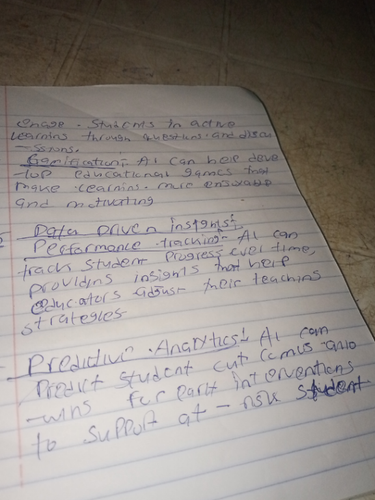 engage. Students in active
learning through questions. and discu
- ssions.
Gamification:- AI can help deve
- lop educational games that
make. learning. more enjoyable
and motivating
Data driven insights:
Performance. tracking:- AI can
track student Progress over time,
providing insights that help
educators adjust their teaching
strategies
- Predictive. Analytics:- AI can
Predict student out comes. allo
- wing for early interventions
to support at - risk student